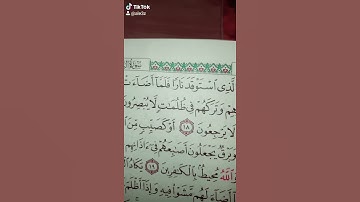 TikTok
سُورَةُ
ٱلَّذِى ٱسْتَوْقَدَ نَارًا فَلَمَّآ أَضَآءَتْ
وَتَرَكَهُمْ فِى ظُلُمَٰتٍ لَّا يُبْصِرُونَ
لَا يَرْجِعُونَ ١٨ أَوْ كَصَيِّبٍ مِّنَ
وَبَرْقٌ يَجْعَلُونَ أَصَٰبِعَهُمْ فِىٓ ءَاذَانِهِم
وَٱللَّهُ مُحِيطٌۢ بِٱلْكَٰفِرِينَ ١٩ يَكَادُ
أَضَآءَ لَهُم مَّشَوْا۟ فِيهِ وَإِذَآ أَظْلَمَ